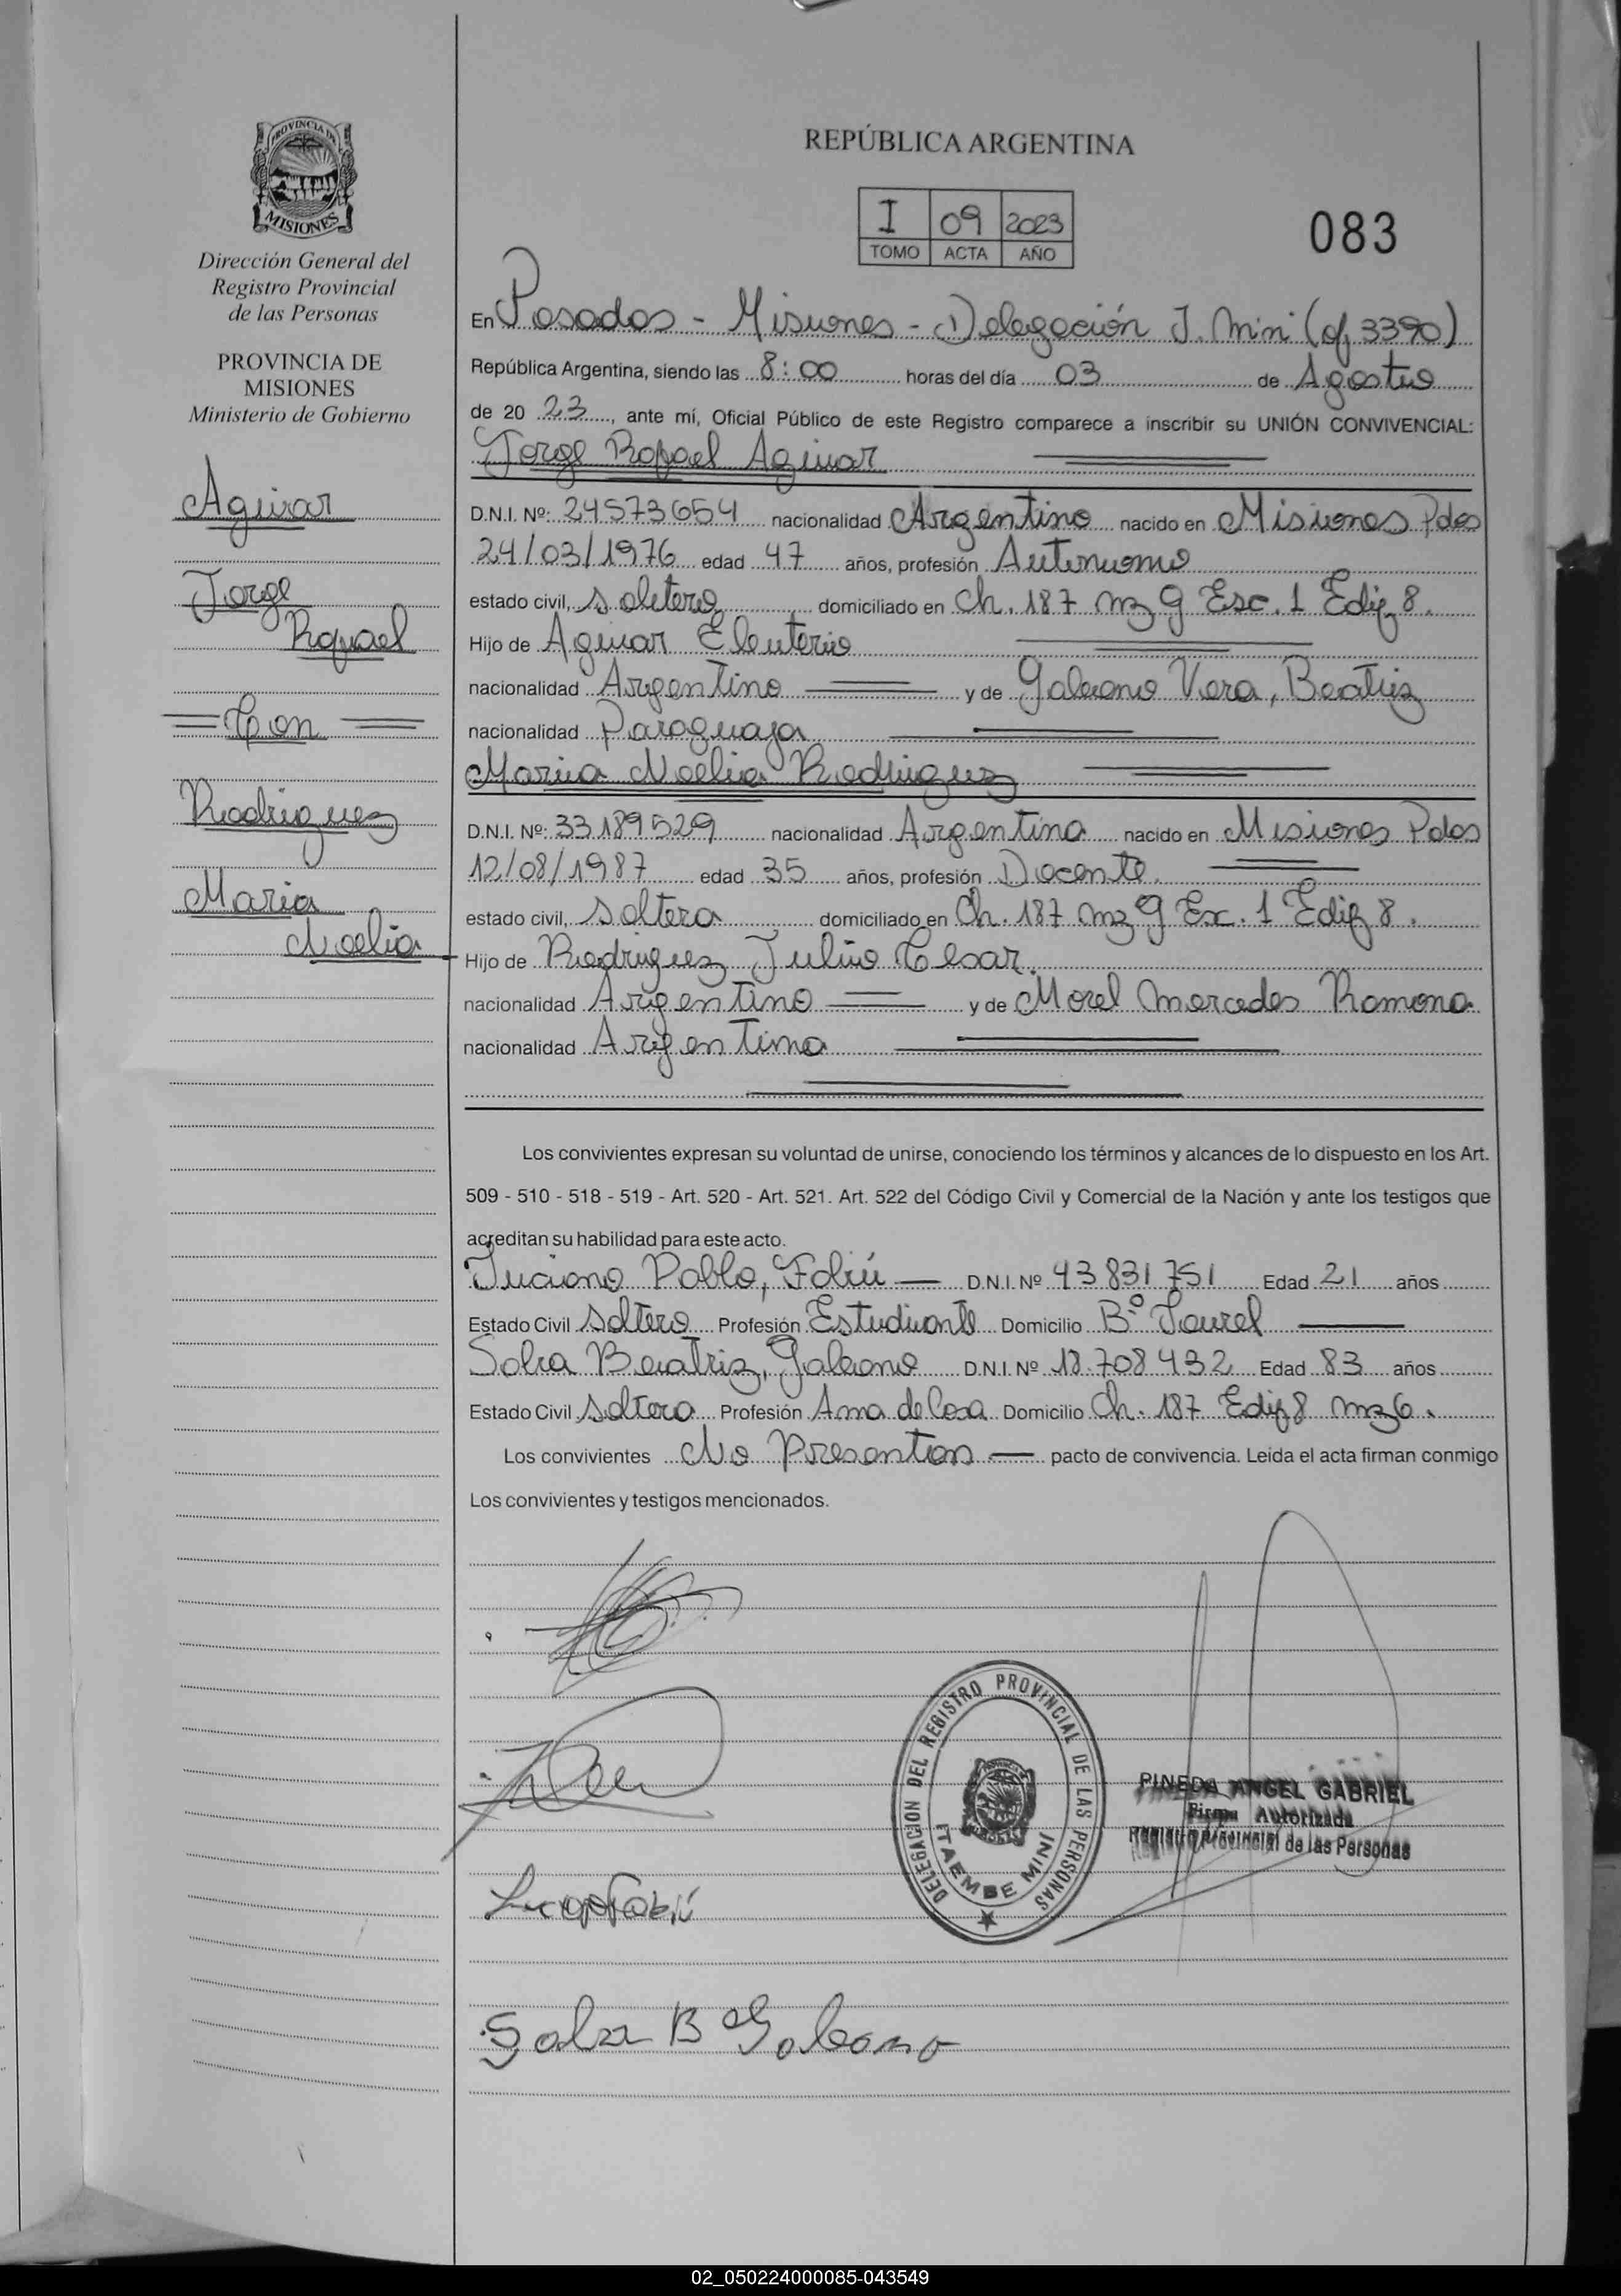 PROVINCIA DE
MISIONES
Dirección General del
Registro Provincial
de las Personas
PROVINCIA DE
MISIONES
Ministerio de Gobierno
Aguiar
Jorge
Rafael
Con
Rodriguez
Maria
Noelia
REPÚBLICA ARGENTINA
I 09 2023
TOMO ACTA AÑO
083
En Posadas - Misiones - Delegación I. Mini (of 3390)
República Argentina, siendo las 8:00 horas del día 03 de Agosto
de 20 23, ante mí, Oficial Público de este Registro comparece a inscribir su UNIÓN CONVIVENCIAL:
Jorge Rafael Aguiar
D.N.I. Nº: 24573654 nacionalidad Argentino nacido en Misiones Pdas
24/03/1976 edad 47 años, profesión Autonomo
estado civil, soltero domiciliado en Ch. 187 mz 9 Esc. 1 Edif 8.
Hijo de Aguiar Eleuterio
nacionalidad Argentino y de Galeano Vera, Beatriz
nacionalidad Paraguaya
Maria Noelia Rodriguez
D.N.I. Nº: 33.189.529 nacionalidad Argentina nacido en Misiones Pdas
12/08/1987 edad 35 años, profesión Docente.
estado civil, soltera domiciliado en Ch. 187 mz 9 Esc. 1 Edif 8.
Hijo de Rodriguez Julio Cesar.
nacionalidad Argentino y de Morel Mercedes Ramona
nacionalidad Argentina
Los convivientes expresan su voluntad de unirse, conociendo los términos y alcances de lo dispuesto en los Art.
509 - 510 - 518 - 519 - Art. 520 - Art. 521. Art. 522 del Código Civil y Comercial de la Nación y ante los testigos que
acreditan su habilidad para este acto.
Luciano Pablo, D.N.I. Nº 43 831 751 Edad 21 años
Estado Civil soltero Profesión Estudiante Domicilio Bº
Beatriz, Galeano D.N.I. Nº 18.708.432 Edad 83 años
Estado Civil soltera Profesión Ama de Casa Domicilio Ch. 187 Edif 8 mz 6.
Los convivientes No Presentan pacto de convivencia. Leida el acta firman conmigo
Los convivientes y testigos mencionados.
DELEGACION DEL REGISTRO PROVINCIAL DE LAS PERSONAS
ITAEMBE MINI
PINEDA ANGEL GABRIEL
Firma Autorizada
Registro Provincial de las Personas
B Galeano
02_050224000085-043549